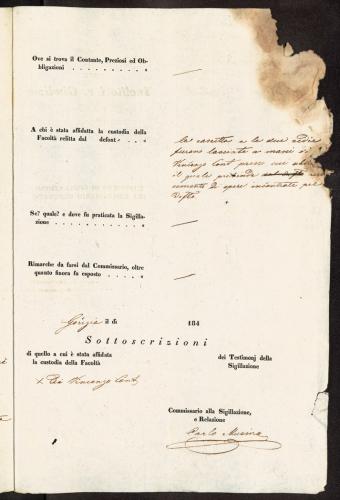 Ove si trova il Contante, Preziosi ed Ob-
bligazioni . . . . . . . . . . «
A chi è stata affidatta la custodia della
Facoltà relitta dal defont . . . «
la carretta e le due sedie
furono lasciate a mani di
Vincenzo Cont presso cui
il quale pretende
di spese incontrate pel
Se? quale? e dove fu praticata la Sigilla-
zione . . . . . . . . . . . «
Rimarche da farsi dal Commissario, oltre
quanto finora fu esposto . . . . «
Gorizia il dì 184
Sottoscrizioni
di quello a cui è stata affidata
la custodia della Facoltà
dei Testimonj della
Sigillazione
Vincenzo Cont
Commissario alla Sigillazione,
e Relazione
Carlo